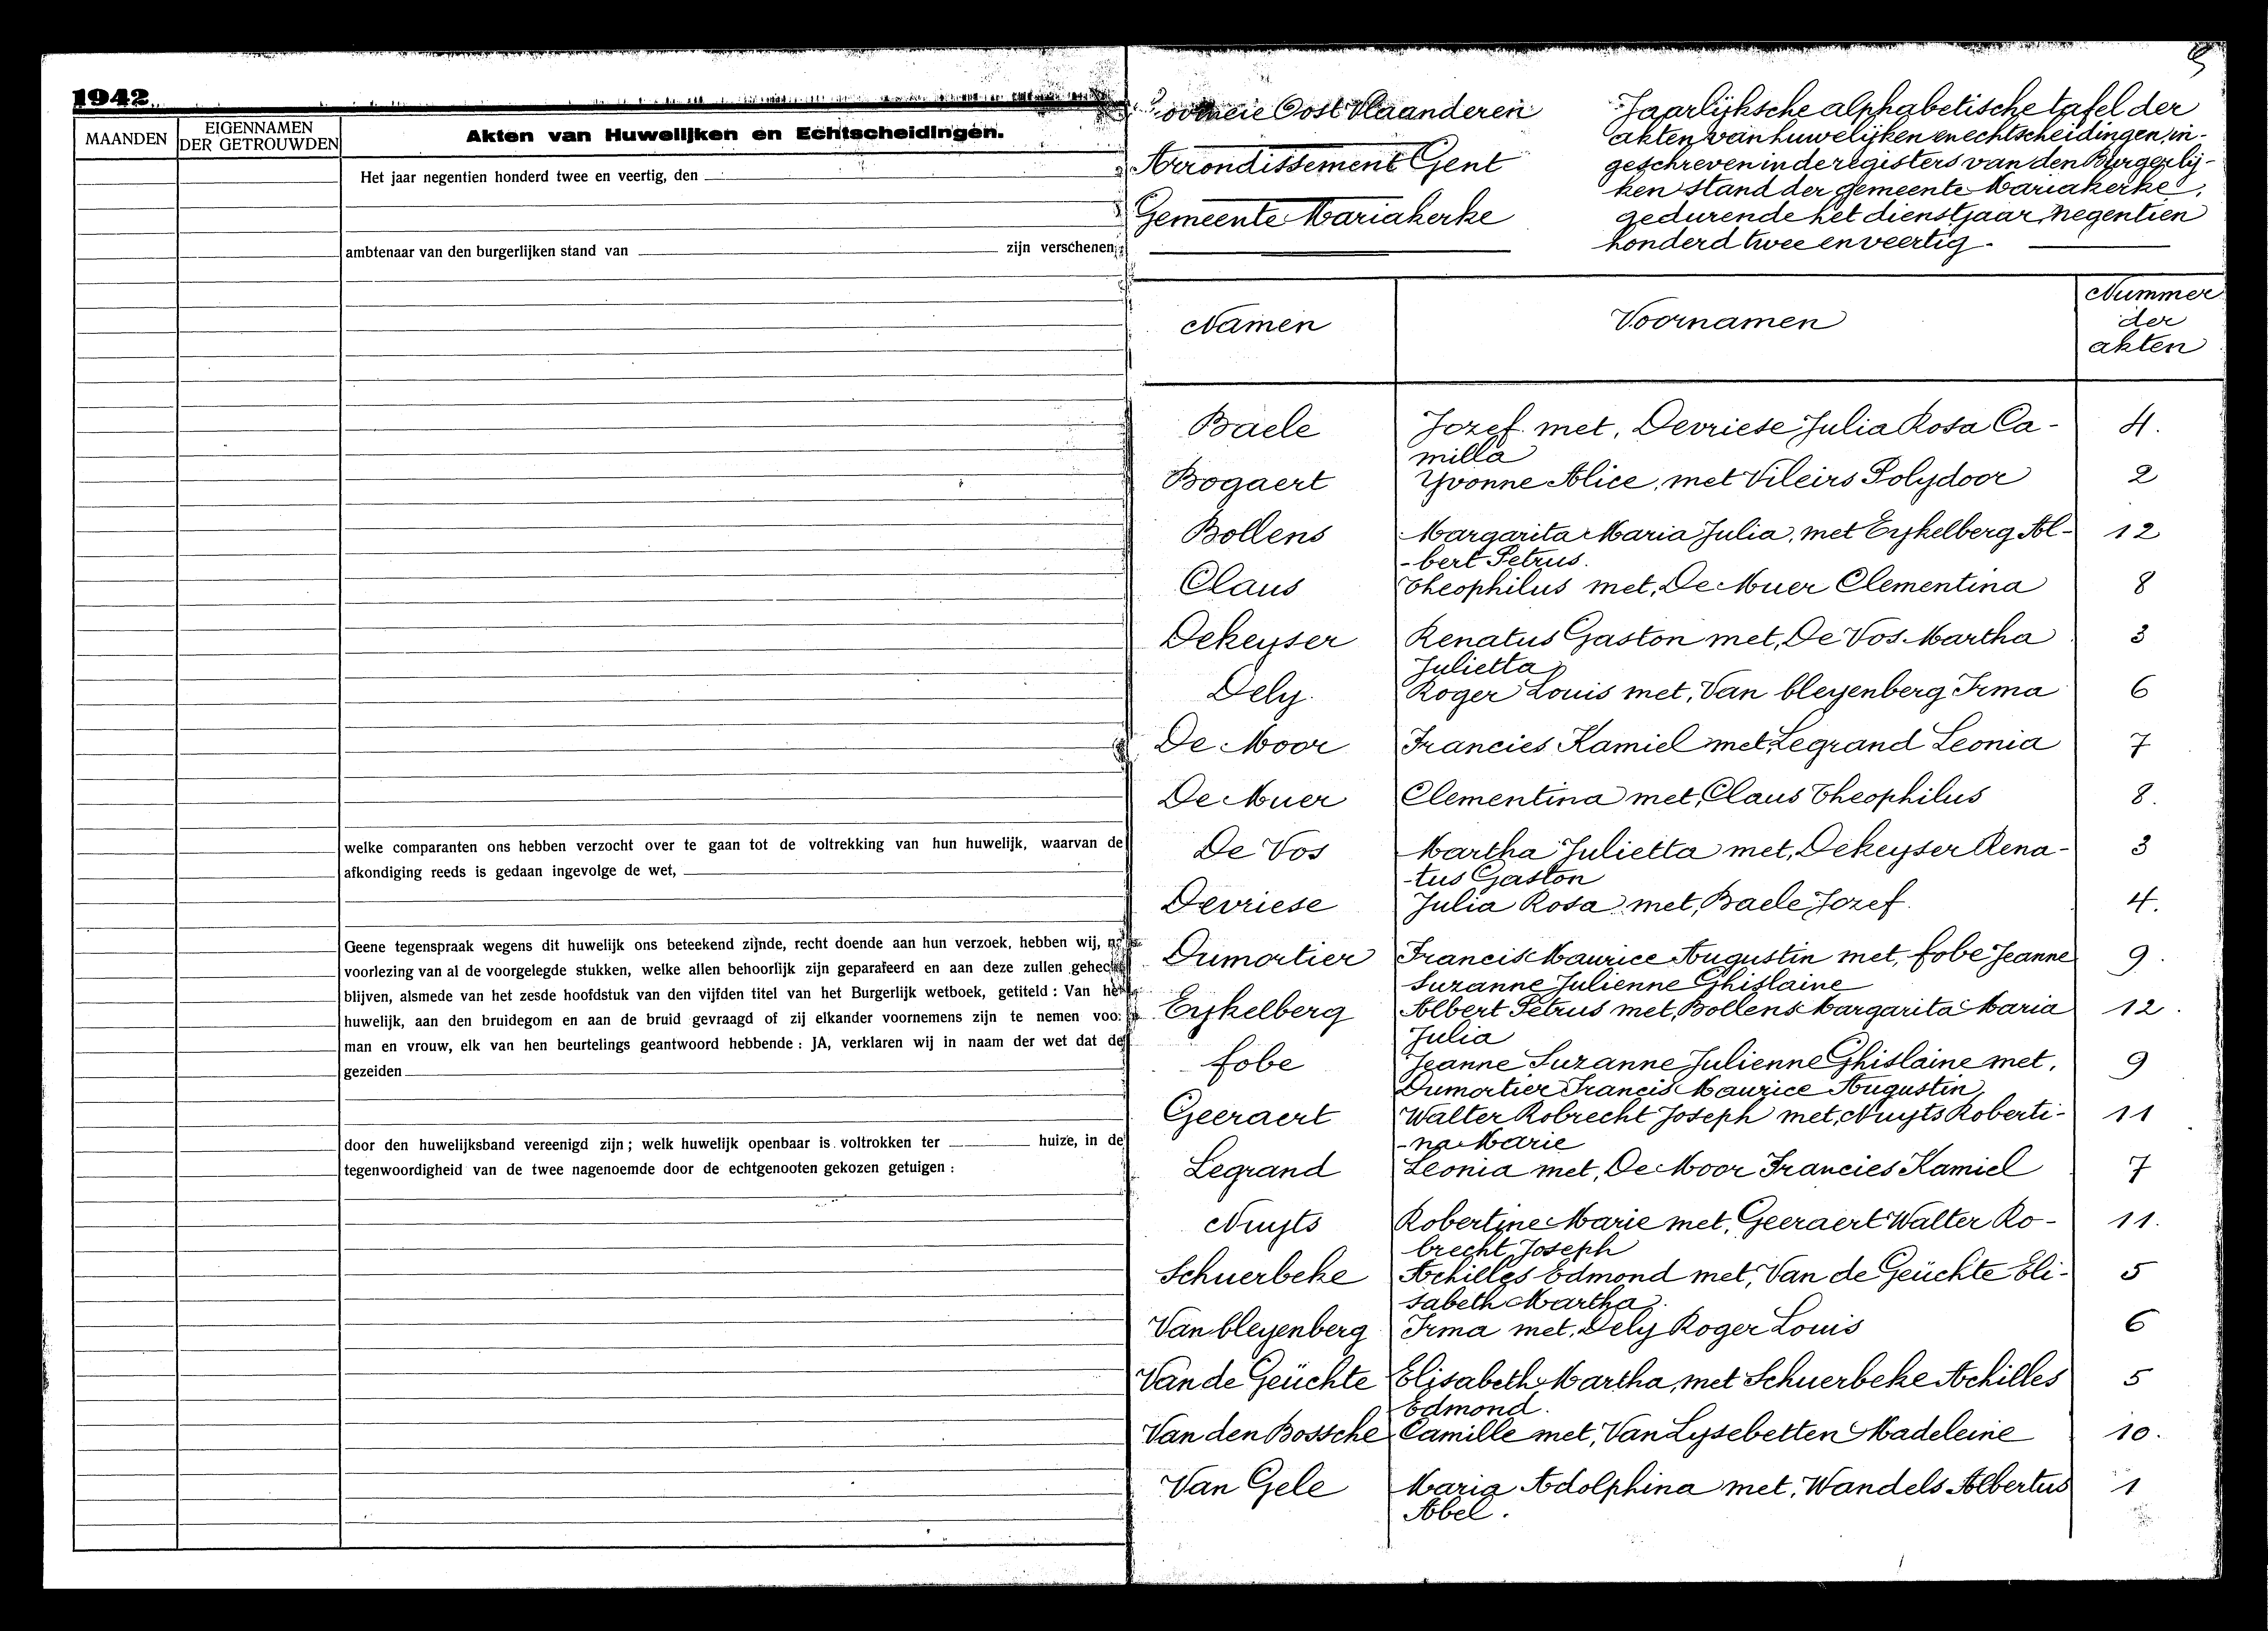 1942
MAANDEN
EIGENNAMEN
DER GETROUWDEN
Akten van Huwelijken en Echtscheidingen.
Het jaar negentien honderd twee en veertig, den
ambtenaar van den burgerlijken stand van zijn verschenen
welke comparanten ons hebben verzocht over te gaan tot de voltrekking van hun huwelijk, waarvan de
afkondiging reeds is gedaan ingevolge de wet,
Geene tegenspraak wegens dit huwelijk ons beteekend zijnde, recht doende aan hun verzoek, hebben wij,
voorlezing van al de voorgelegde stukken, welke allen behoorlijk zijn geparafeerd en aan deze zullen gehecht
blijven, alsmede van het zesde hoofdstuk van den vijfden titel van het Burgerlijk wetboek, getiteld : Van het
huwelijk, aan den bruidegom en aan de bruid gevraagd of zij elkander voornemens zijn te nemen voor
man en vrouw, elk van hen beurtelings geantwoord hebbende : JA, verklaren wij in naam der wet dat de
gezeiden
door den huwelijksband vereenigd zijn ; welk huwelijk openbaar is voltrokken ter huize, in de
tegenwoordigheid van de twee nagenoemde door de echtgenooten gekozen getuigen :
Provincie Oost Vlaanderen
Arrondissement Gent
Gemeente Mariakerke
Jaarlijksche alphabetische tafel der
akten van huwelijken en echtscheidingen, in-
geschreven in de registers van den Burgerlij-
ken stand der gemeente Mariakerke,
gedurende het dienstjaar negentien
honderd twee en veertig.
Namen Voornamen Nummer
der
akten
Baele Jozef met, Devriese Julia Rosa Ca- 4.
milla
Bogaert Yvonne Alice, met Vileirs Polydoor 2
Bollens Margarita Maria Julia, met Eykelberg Al- 12
-bert Petrus.
Claus Theophilus met, De Muer Clementina 8
Dekeyser Renatus Gaston met, De Vos Martha 3
Julietta
Dely Roger Louis met, Van bleyenberg Irma 6
De Moor Francies Kamiel met, Legrand Leonia 7
De Muer Clementina met, Claus Theophilus 8.
De Vos Martha Julietta met, Dekeyser Rena- 3
-tus Gaston
Devriese Julia Rosa met, Baele Jozef 4.
Dumortier Francis Maurice Augustin met, fobe Jeanne 9.
Suzanne Julienne Ghislaine
Eykelberg Albert Petrus met, Bollens Margarita Maria 12.
Julia
fobe Jeanne Suzanne Julienne Ghislaine met, 9
Dumortier Francis Maurice Augustin,
Geeraert Walter Robrecht Joseph met, Nuyts Roberti- 11
-na Marie
Legrand Leonia met, De Moor Francies Kamiel 7
Nuyts Robertine Marie met, Geeraert Walter Ro- 11.
brecht Joseph
Schuerbeke Achilles Edmond met, Van de Geüchte Eli- 5
sabeth Martha.
Van bleyenberg Irma met, Dely Roger Louis 6
Van de Geüchte Elisabeth Martha, met Schuerbeke Achilles 5
Edmond.
Van den Bossche Camille met, Van Lysebetten Madeleine 10.
Van Gele Maria Adolphina met, Wandels Albertus 1
Abel.